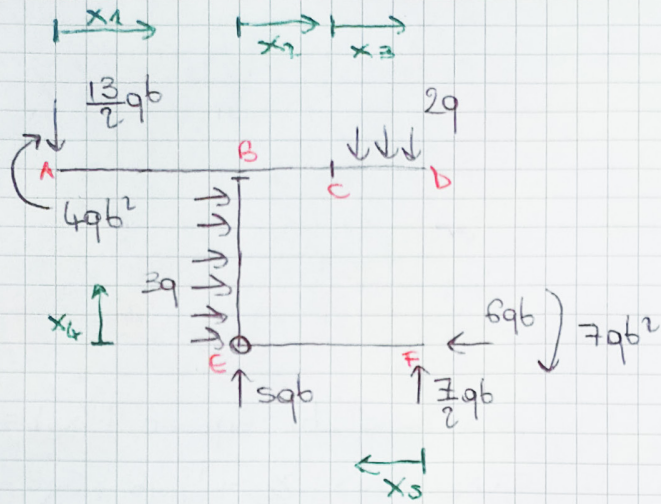 x1
x2
x3
13/2 qb
2q
A
B
C
D
4qb²
3q
x4
E
F
6qb
7qb²
5qb
7/2 qb
x5